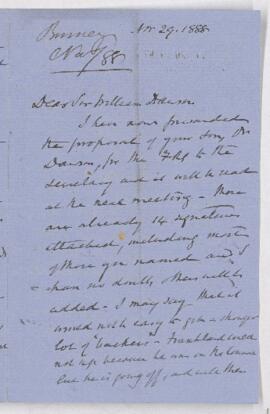 Burney
Nov/88
Nov 29. 1888
Dear Sir William Dawson
I have now forwarded
the proposal of your Son, Dr
Dawson, for the FRS to the
Secretary and it will be read
at the next meeting – there
are already 14 signatures
attached, including most
of those you named and I
have no doubt others will be
added – I may say that it
would not be easy to get a stronger
lot of "backers" – Frankland could
not sign because he was on the Council
but he is going off, and will then